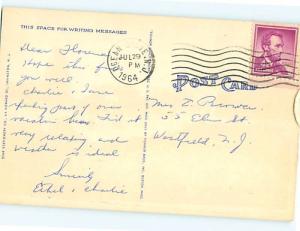 THIS SPACE FOR WRITING MESSAGES
OCEAN N.J.
JUL 29
PM
1964
POST CARD
Dear Florence
Hope this finds
you well.
Charlie & I are
taking part of our
vacation here. Find it
very relaxing and
weather is ideal
Sincerely
Ethel & Charlie
Mrs F. Brown
55 Elm St
Westfield, N.J.